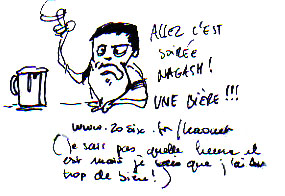 ALLEZ C'EST
SOIRÉE
NAGASH!
UNE BIÈRE!!!
www.20six.fr/kaouet
(je sais pas quelle heure il
est mais je crois que j'ai bu
trop de bière!)